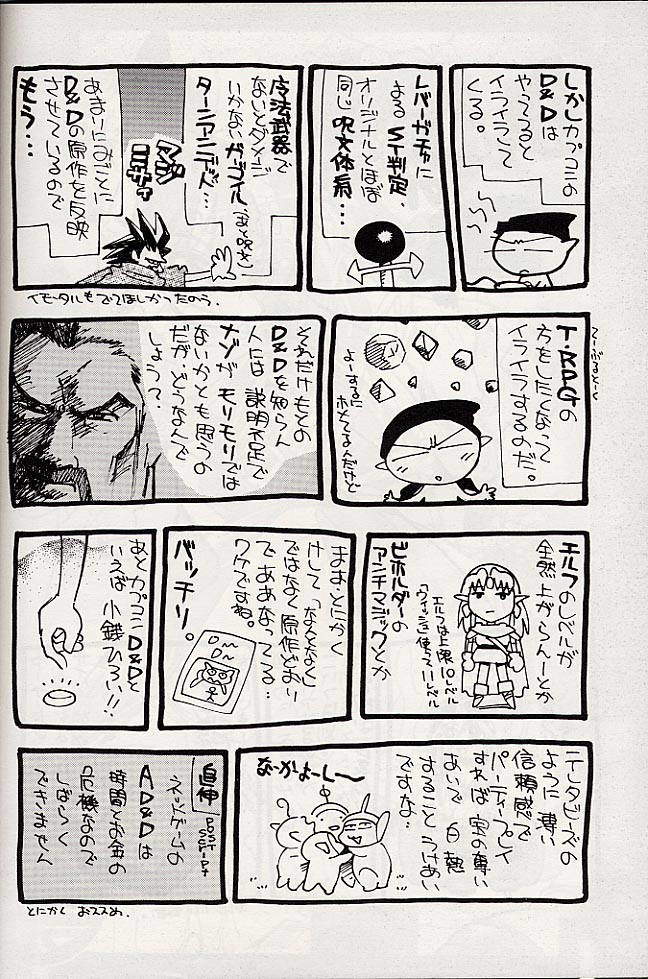 しかしカプコンの
D&Dは
やってると
イライラして
くる。
レバーガチャに
よるST判定、
オリジナルとほぼ
同じ呪文体系…
魔法武器で
ないとダメージ
いかないガーゴイル(まど呪文)
ターンアンデッド…
マジ
あまりにみごとに
D&Dの原作を反映
させているので
もう…
イモータルもでてほしかったのう。
てーぶるとーく
T・RPGの
方をしたくなって
イライラするのだ。
よーするに
ホメてるんだけど
それだけもとの
D&Dを知らん
人には説明不足で
ナゾがモリモリでは
ないかとも思うの
だが、どうなんで
しょうって。
エルフのレベルが
全然上がらんーとか
エルフは上限10レベル
「ウィッシュ」使って11レベル
ビホルダーの
アンチマジックとか
ままとにかく
けして「なんとなく」
ではなく原作どおり
であああなってる…
ワケですね。
バッチリ。
D〜
D〜
あとカプコンD&Dと
いえば小銭ひろい!!
テレタビーズの
ように薄い
信頼感で
パーティープレイ
すれば宝の奪い
あいで白熱
することうけあい
ですな…
なーかよーし〜
追伸
POST
SCRIPT
ネットゲームの
AD&Dは
時間とお金の
危機なので
しばらく
できません
とにかくおススメ。